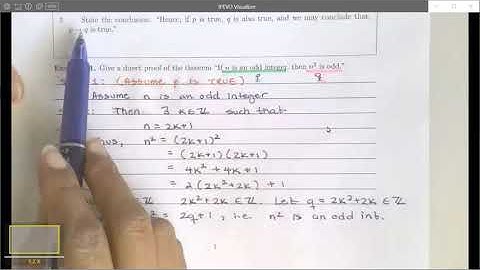 IPEVO Visualizer
3 State the conclusion: "Hence, if p is true, q is also true, and we may conclude that
q is true."
1. Give a direct proof of the theorem "If n is an odd integer, then n² is odd."
1: (Assume p is TRUE) P q
Assume n is an odd integer
: Then ∃ k∈ℤ such that
n = 2k+1
Thus, n² = (2k+1)²
= (2k+1)(2k+1)
= 4k² + 4k + 1
= 2(2k²+2k) + 1
∈ℤ 2k²+2k ∈ ℤ. Let q = 2k²+2k ∈ ℤ
² = 2q+1, i.e. n² is an odd int.
1